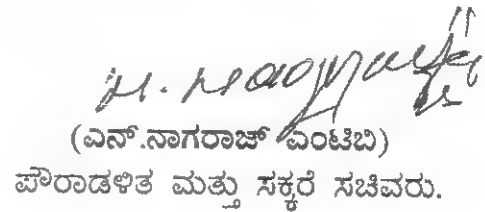 (ಎನ್.ನಾಗರಾಜ್ ಎಂಟಿಬಿ)
ಪೌರಾಡಳಿತ ಮತ್ತು ಸಕ್ಕರೆ ಸಚಿವರು.